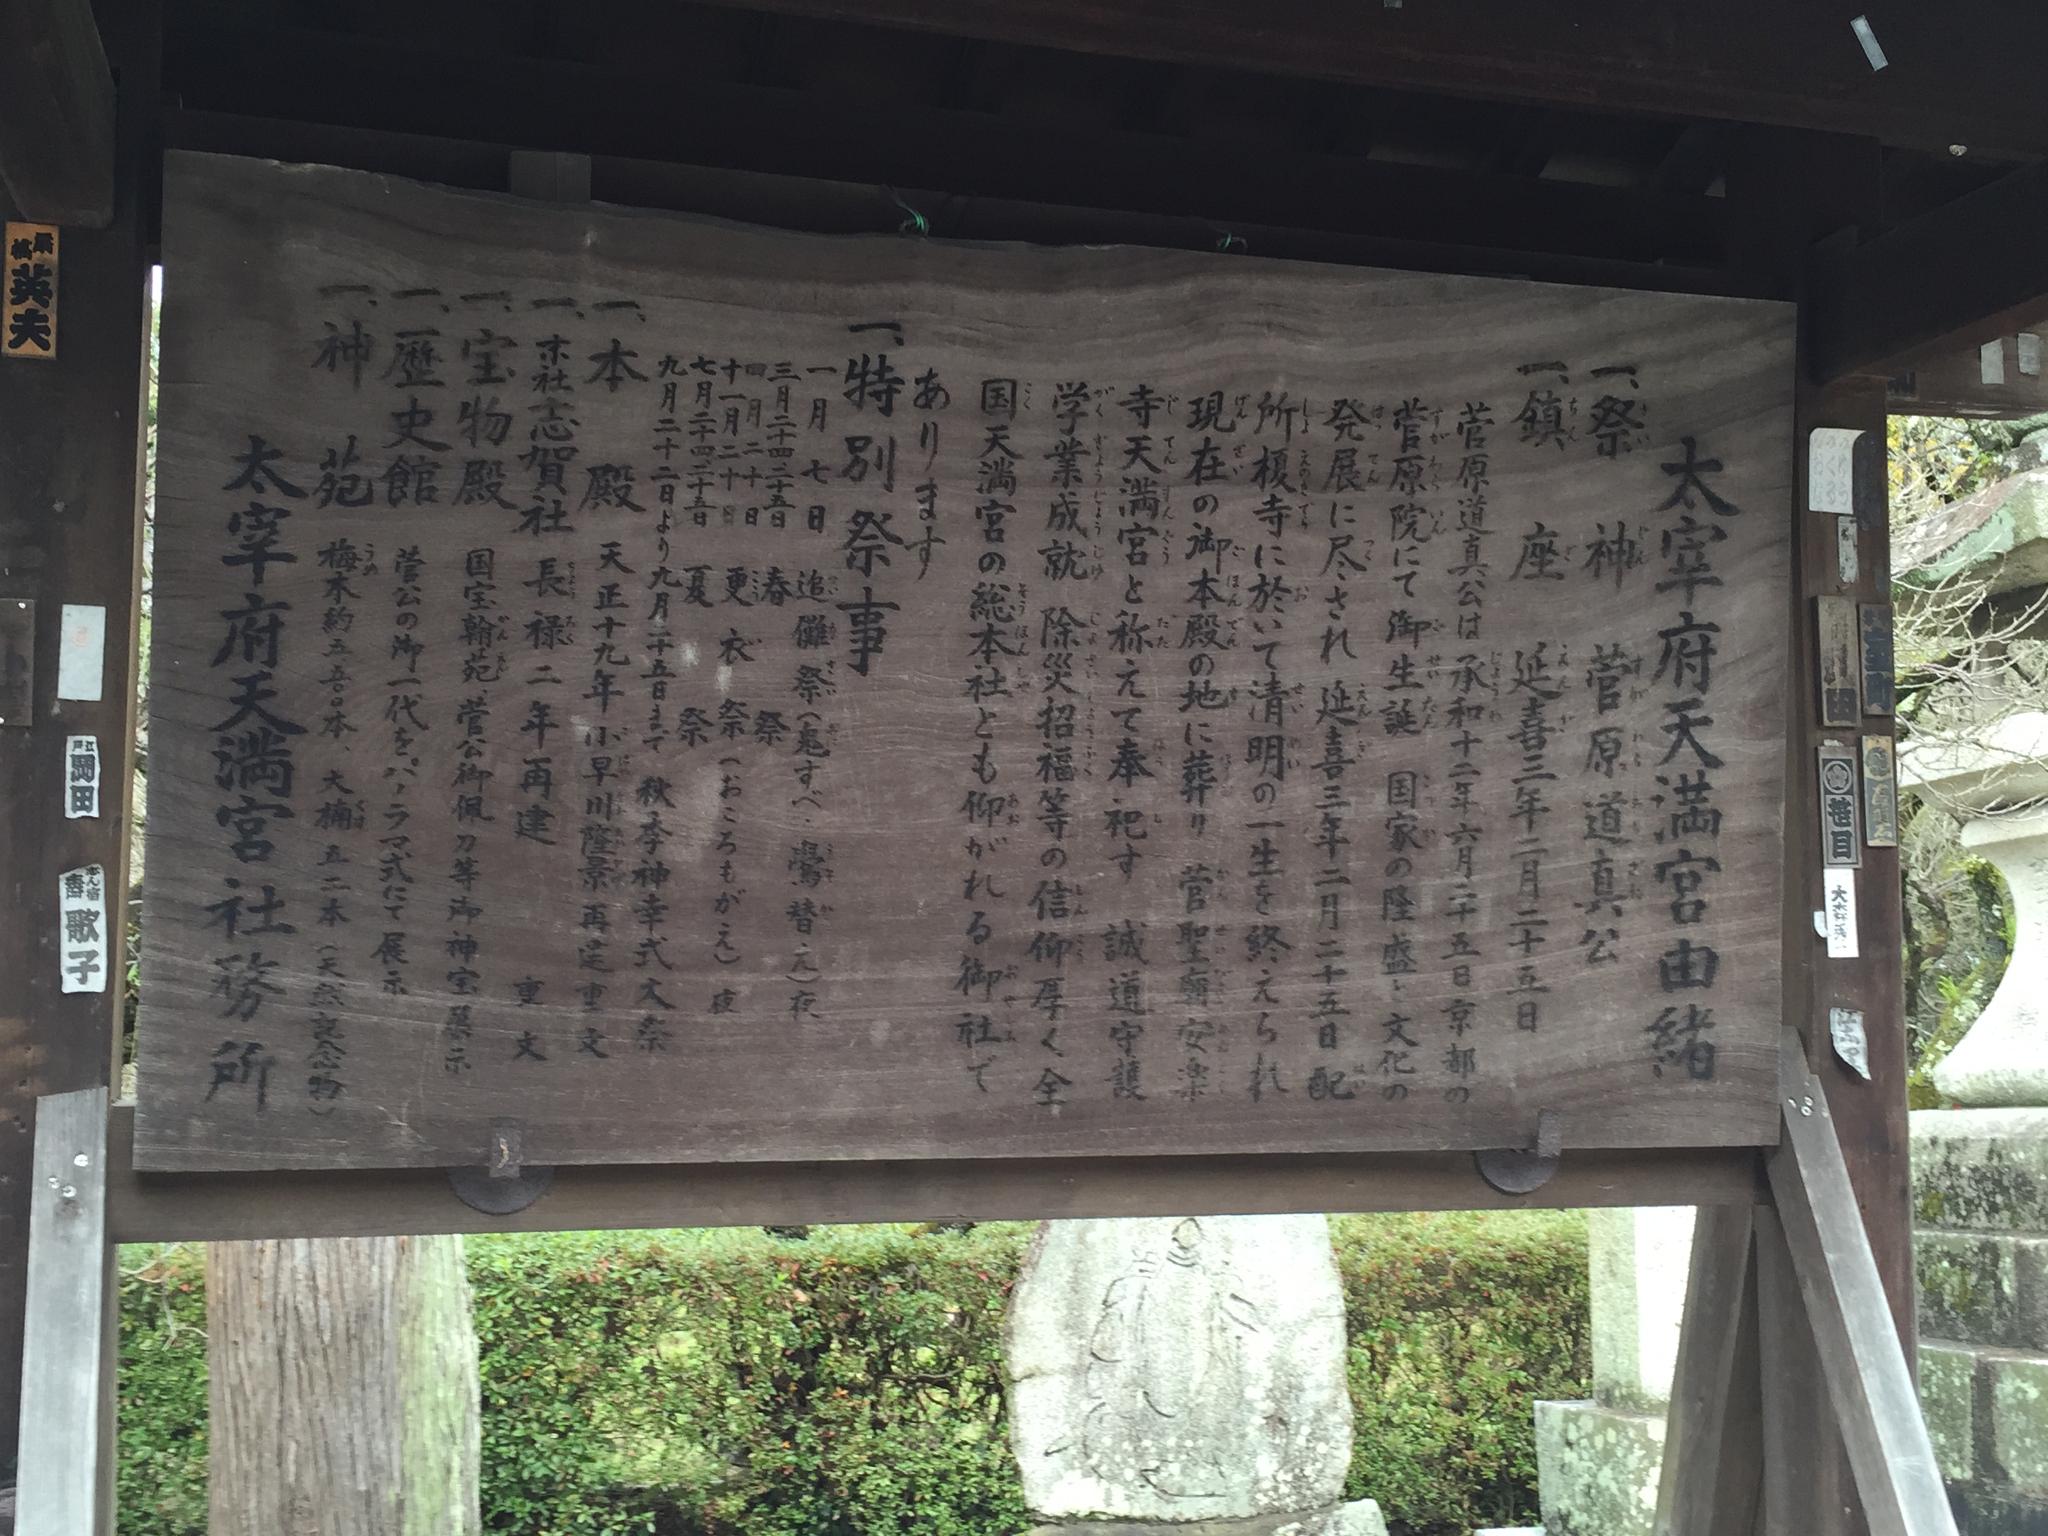 太宰府天満宮由緒
一、祭神 菅原道真公
一、鎮座 延喜三年二月二十五日
菅原道真公は承和十二年六月二十五日京都の
菅原院にて御生誕 国家の隆盛と文化の
発展に尽され 延喜三年二月二十五日配
所榎寺に於いて清明の一生を終えられ
現在の御本殿の地に葬り 菅聖廟安楽
寺天満宮と称えて奉祀す 誠道守護
学業成就 除災招福等の信仰厚く全
国天満宮の総本社とも仰がれる御社で
あります
一、特別祭事
一月七日 追儺祭(鬼すべ・鷽替え)夜
三月二十四二十五日 春祭
四月二十日
十一月二十日 更衣祭(おころもがえ)夜
七月二十四二十五日 夏祭
九月二十二日より九月二十五日まで 秋季神幸式大祭
一、本殿 天正十九年小早川隆景再建 重文
一、末社志賀社 長禄二年再建 重文
一、宝物殿 国宝翰苑、菅公御佩刀等御神宝展示
一、歴史館 菅公の御一代をパノラマ式にて展示
一、神苑 梅木約五五〇本、大楠五二本(天然記念物)
太宰府天満宮社務所
英夫
江戸
岡田
歌子
笹目